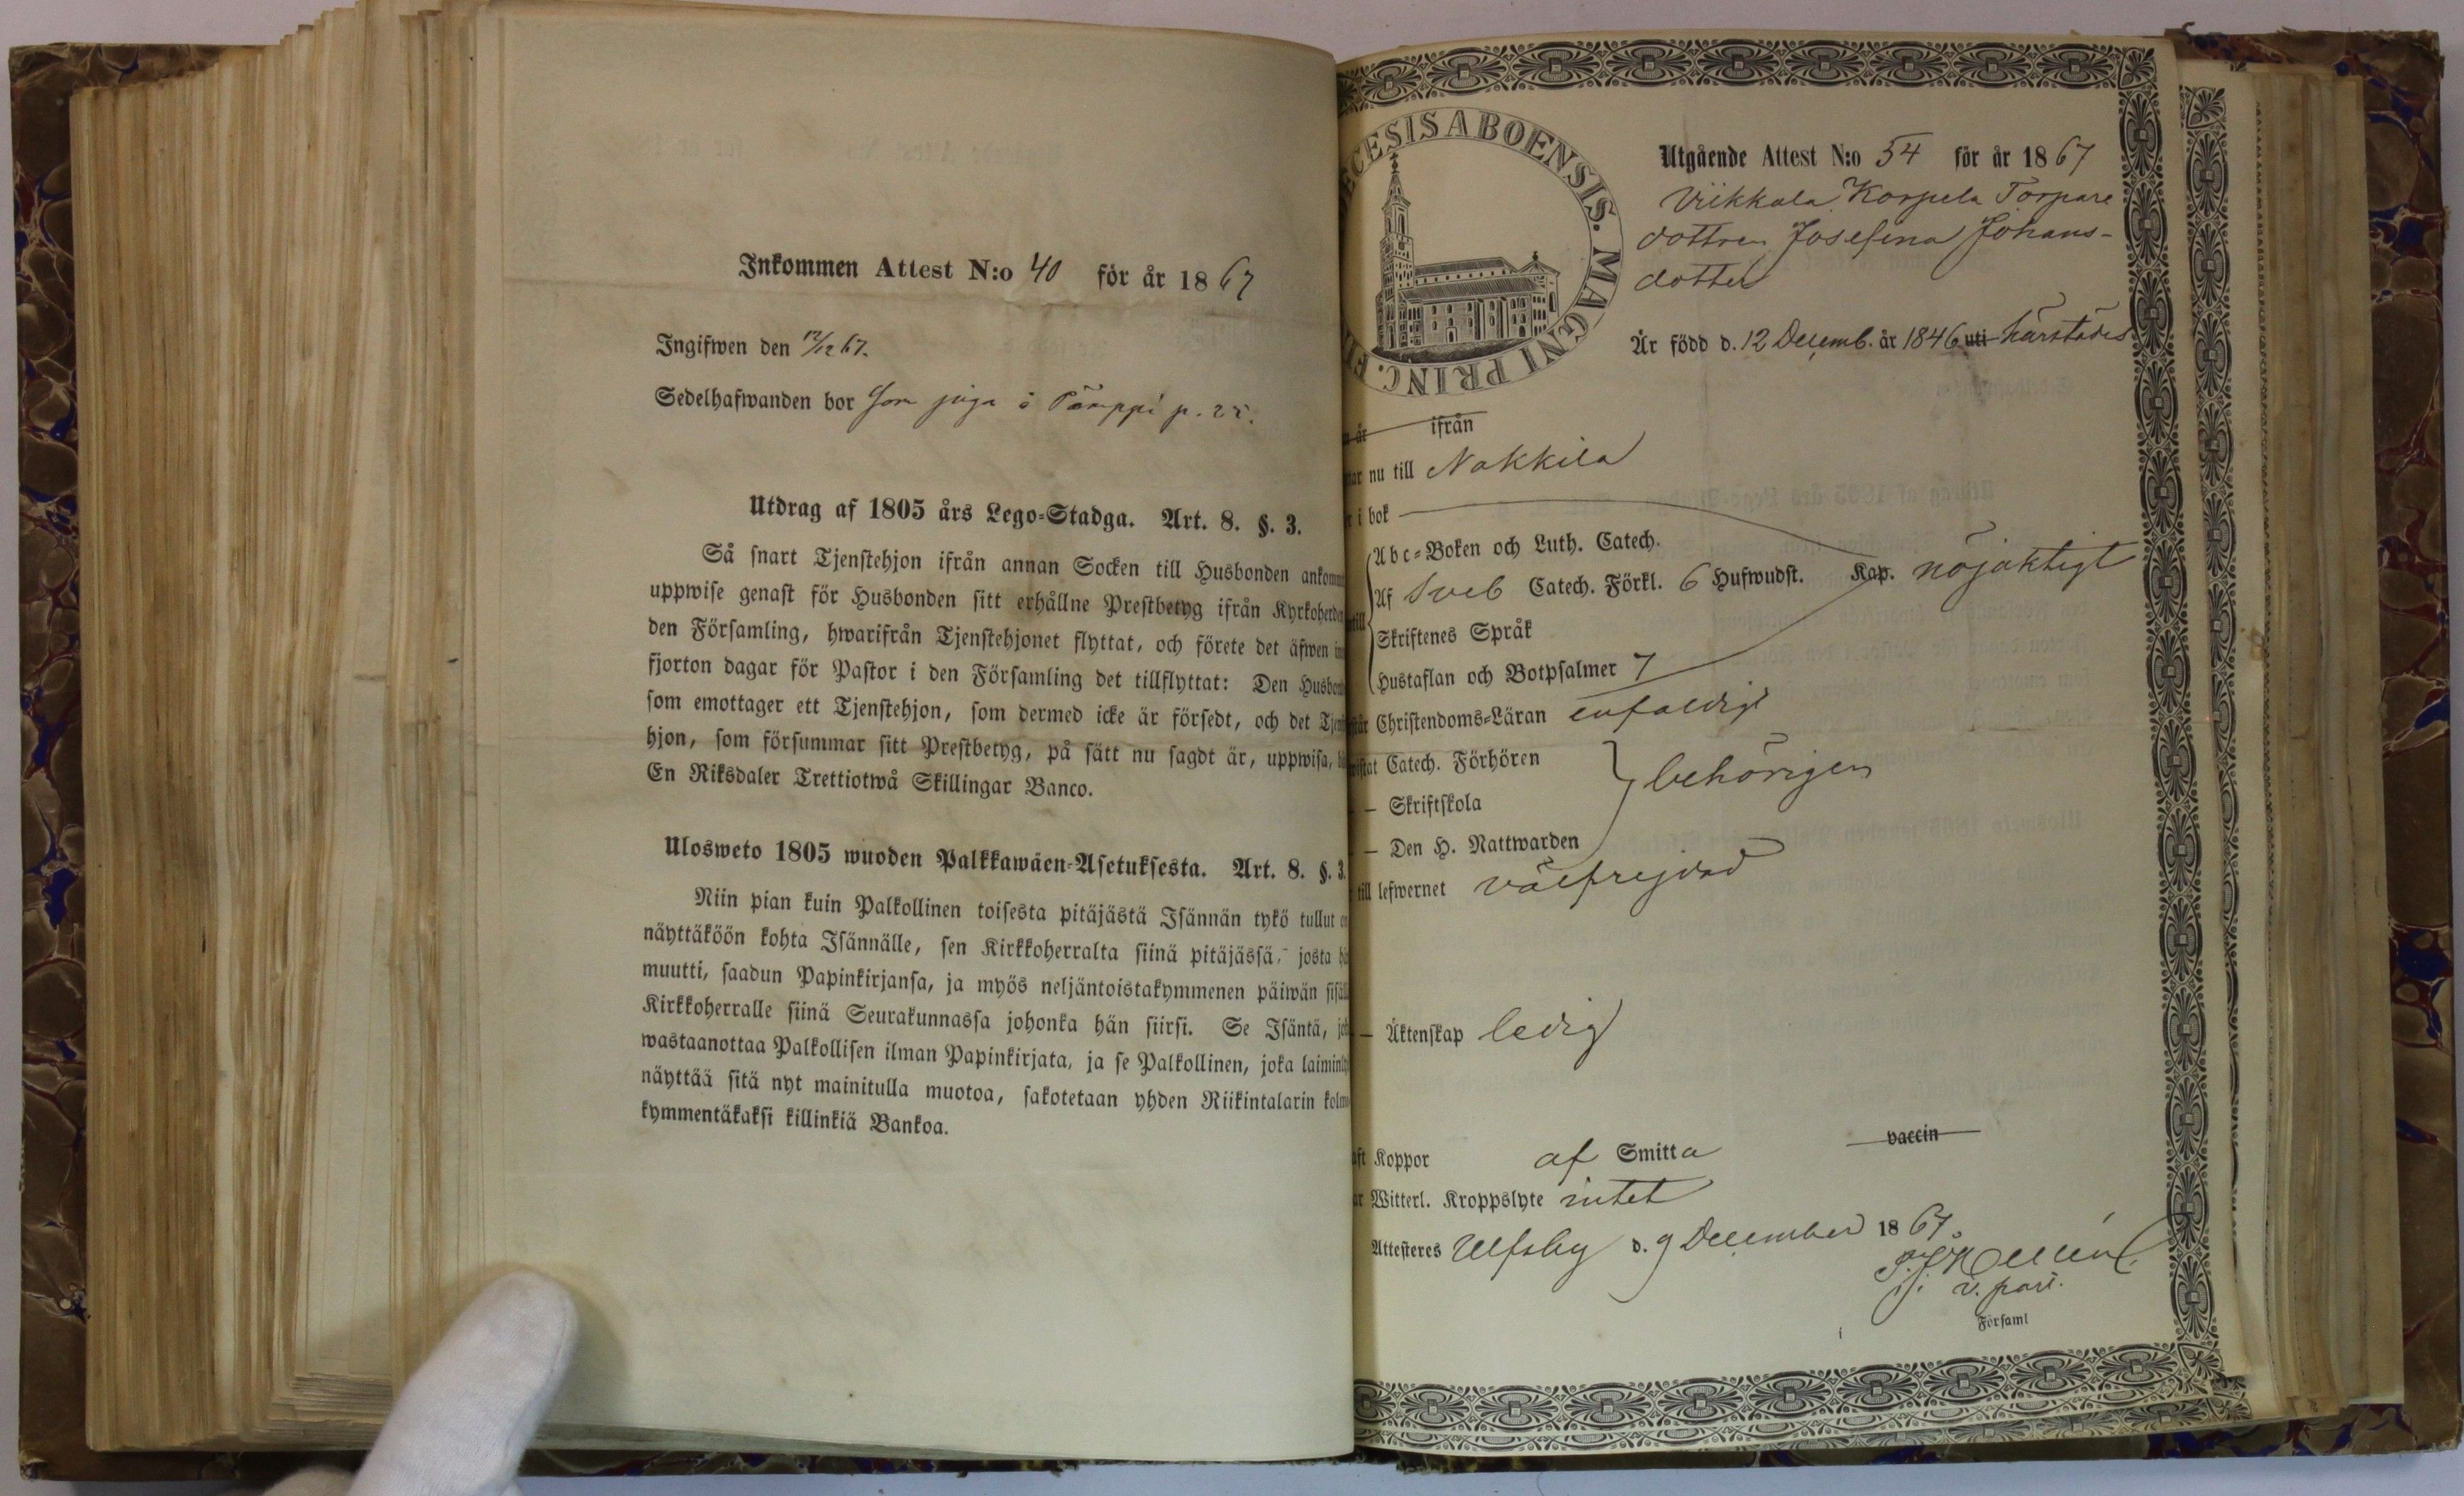 Inkommen Attest N:o 40 för år 1867
Ingifwen den 12/12 67.
Sedelhafwanden bor som piga å Pämppi p. 25.
Utdrag af 1805 års Lego-Stadga. Art. 8. §. 3.
Så snart Tjenstehjon ifrån annan Socken till Husbonden
uppwise genast för Husbonden sitt erhållne Prestbetyg ifrån
den Församling, hwarifrån Tjenstehjonet flyttat, och förete det äfwen
fjorton dagar för Pastor i den Församling det tillflyttat: Den
som emottager ett Tjenstehjon, som dermed icke är försedt, och det
hjon, som försummar sitt Prestbetyg, på sätt nu sagdt är, uppwisa,
En Riksdaler Trettiotwå Skillingar Banco.
Ulosweto 1805 wuoden Palkkawäen-Asetuksesta. Art. 8. §. 3.
Niin pian kuin Palkollinen toisesta pitäjästä Isännän tykö tullut
näyttäköön kohta Isännälle, sen Kirkkoherralta siinä pitäjässä, josta
muutti, saadun Papinkirjansa, ja myös neljäntoistakymmenen päiwän
Kirkkoherralle siinä Seurakunnassa johonka hän siirsi. Se Isäntä,
wastaanottaa Palkollisen ilman Papinkirjata, ja se Palkollinen, joka
näyttää sitä nyt mainitulla muotoa, sakotetaan yhden Riikintalarin
kymmentäkaksi killinkiä Bankoa.
ECESIS ABOENSIS. MAGNI PRINC.
Utgående Attest N:o 54 för år 1867
Viikkala Korpela Torpare
dottren Josefina Johans-
dotter
Är född d. 12 Decemb. år 1846 uti härstädes
ifrån
nu till Nakkila
i bok
Abc-Boken och Luth. Catech.
Af Sveb Catech. Förkl. 6 Hufwudst. Kap. nöjaktigt
Skriftenes Språk
Hustaflan och Botpsalmer 7
Christendoms-Läran enfaldigt
Catech. Förhören
— Skriftskola
behörigen
— Den H. Nattwarden
till lefwernet välfrejdad
— Äktenskap ledig
Koppor af Smitta vaccin
Witterl. Kroppslyte intet
Attesteres Ulfsby d. 9 December 1867.
v. past.
i Församl